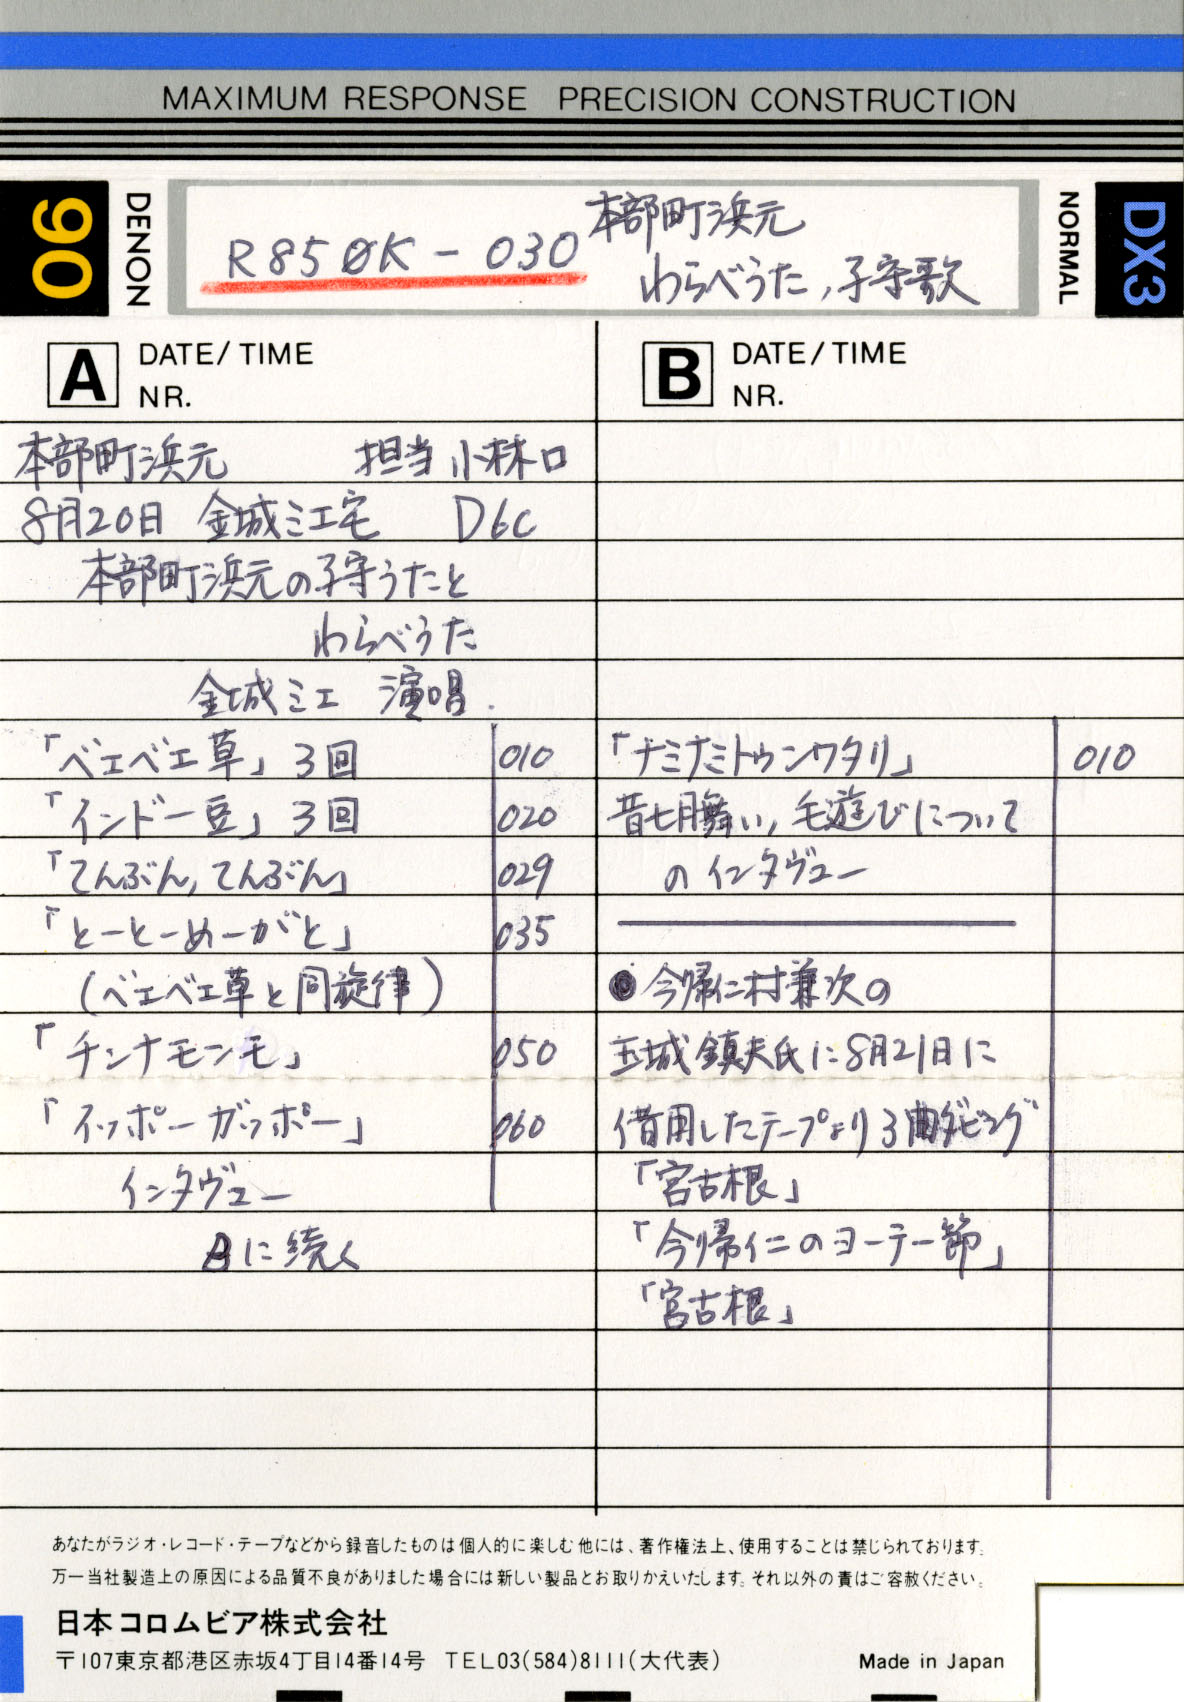 MAXIMUM RESPONSE PRECISION CONSTRUCTION
90
DENON
R850K-030
本部町浜元
わらべうた,子守歌
NORMAL
DX3
A DATE/TIME
NR.
本部町浜元 担当 小林口
8月20日 金城ミエ宅 D6C
本部町浜元の子守うたと
わらべうた
金城ミエ 演唱.
「ベエベエ草」3回 010
「インドー豆」3回 020
「てんぶん,てんぶん」 029
「とーとーめーがと」 035
(ベエベエ草と同旋律)
「チンナモンモ」 050
「イッポーガッポー」 060
インタヴュー
Bに続く
B DATE/TIME
NR.
「ナミナミトゥンワタリ」 010
昔七月舞い,毛遊びについて
のインタヴュー
●今帰仁村兼次の
玉城鎮夫氏に8月21日に
借用したテープより3曲ダビング
「宮古根」
「今帰仁のヨーテー節」
「宮古根」
あなたがラジオ・レコード・テープなどから録音したものは個人的に楽しむ他には、著作権法上、使用することは禁じられております。
万一当社製造上の原因による品質不良がありました場合には新しい製品とお取りかえいたします。それ以外の責はご容赦ください。
日本コロムビア株式会社
〒107東京都港区赤坂4丁目14番14号 TEL03(584)8111(大代表)
Made in Japan